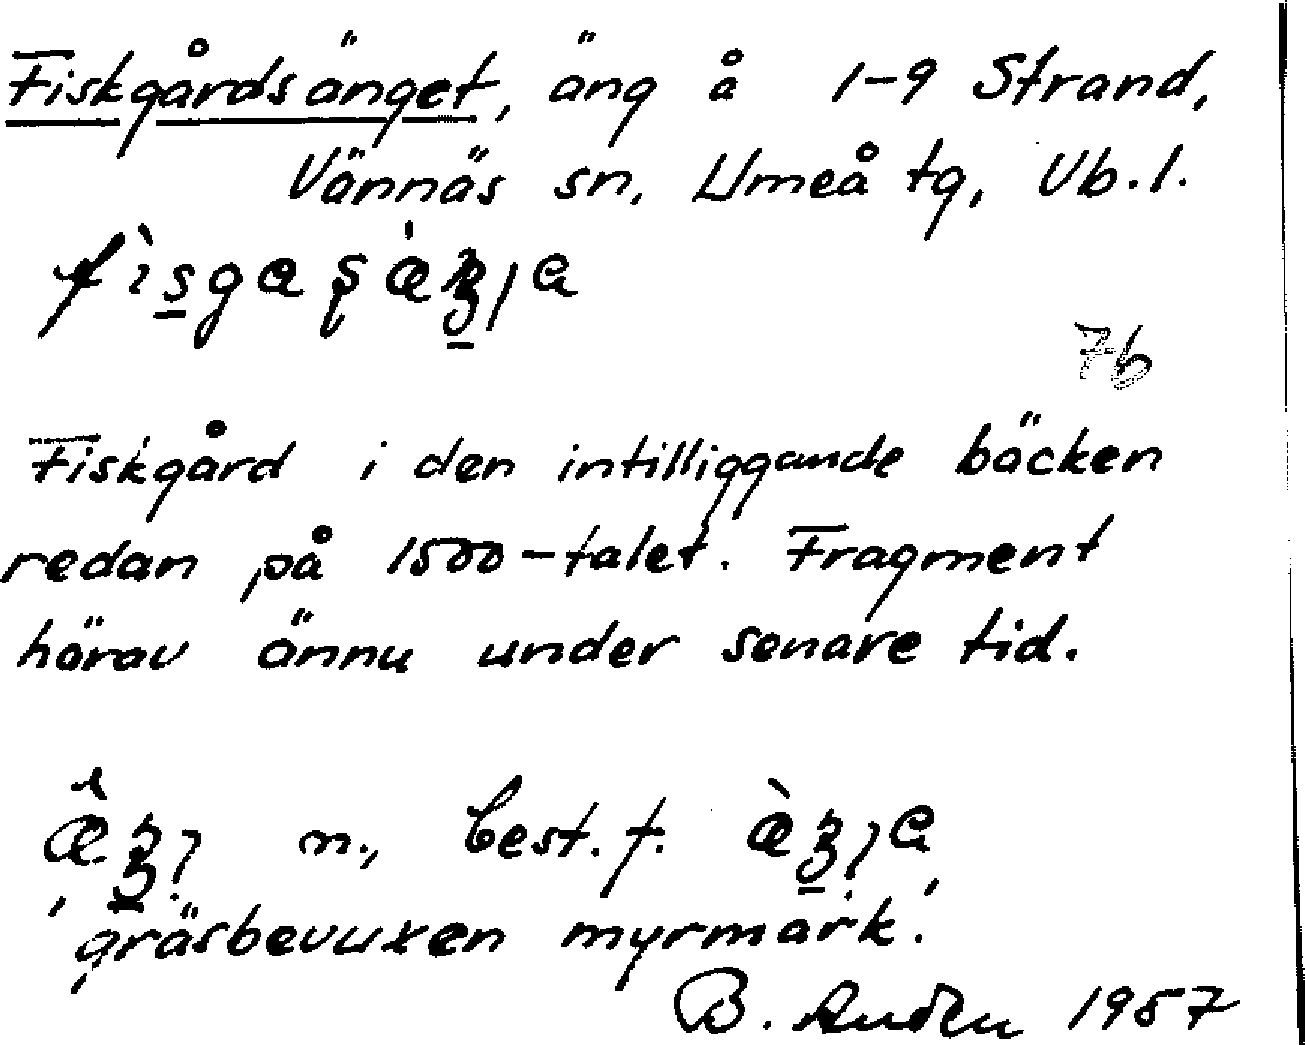 Fiskgårdsänget, äng å 1-9 Strand,
Vännäs sn, Umeå tg, Vb.l.
7b
Fiskgård i den intilliggande bäcken
redan på 1500-talet. Fragment
härav ännu under senare tid.
n., best. f.
'gräsbevuxen myrmark.'
B. 1957